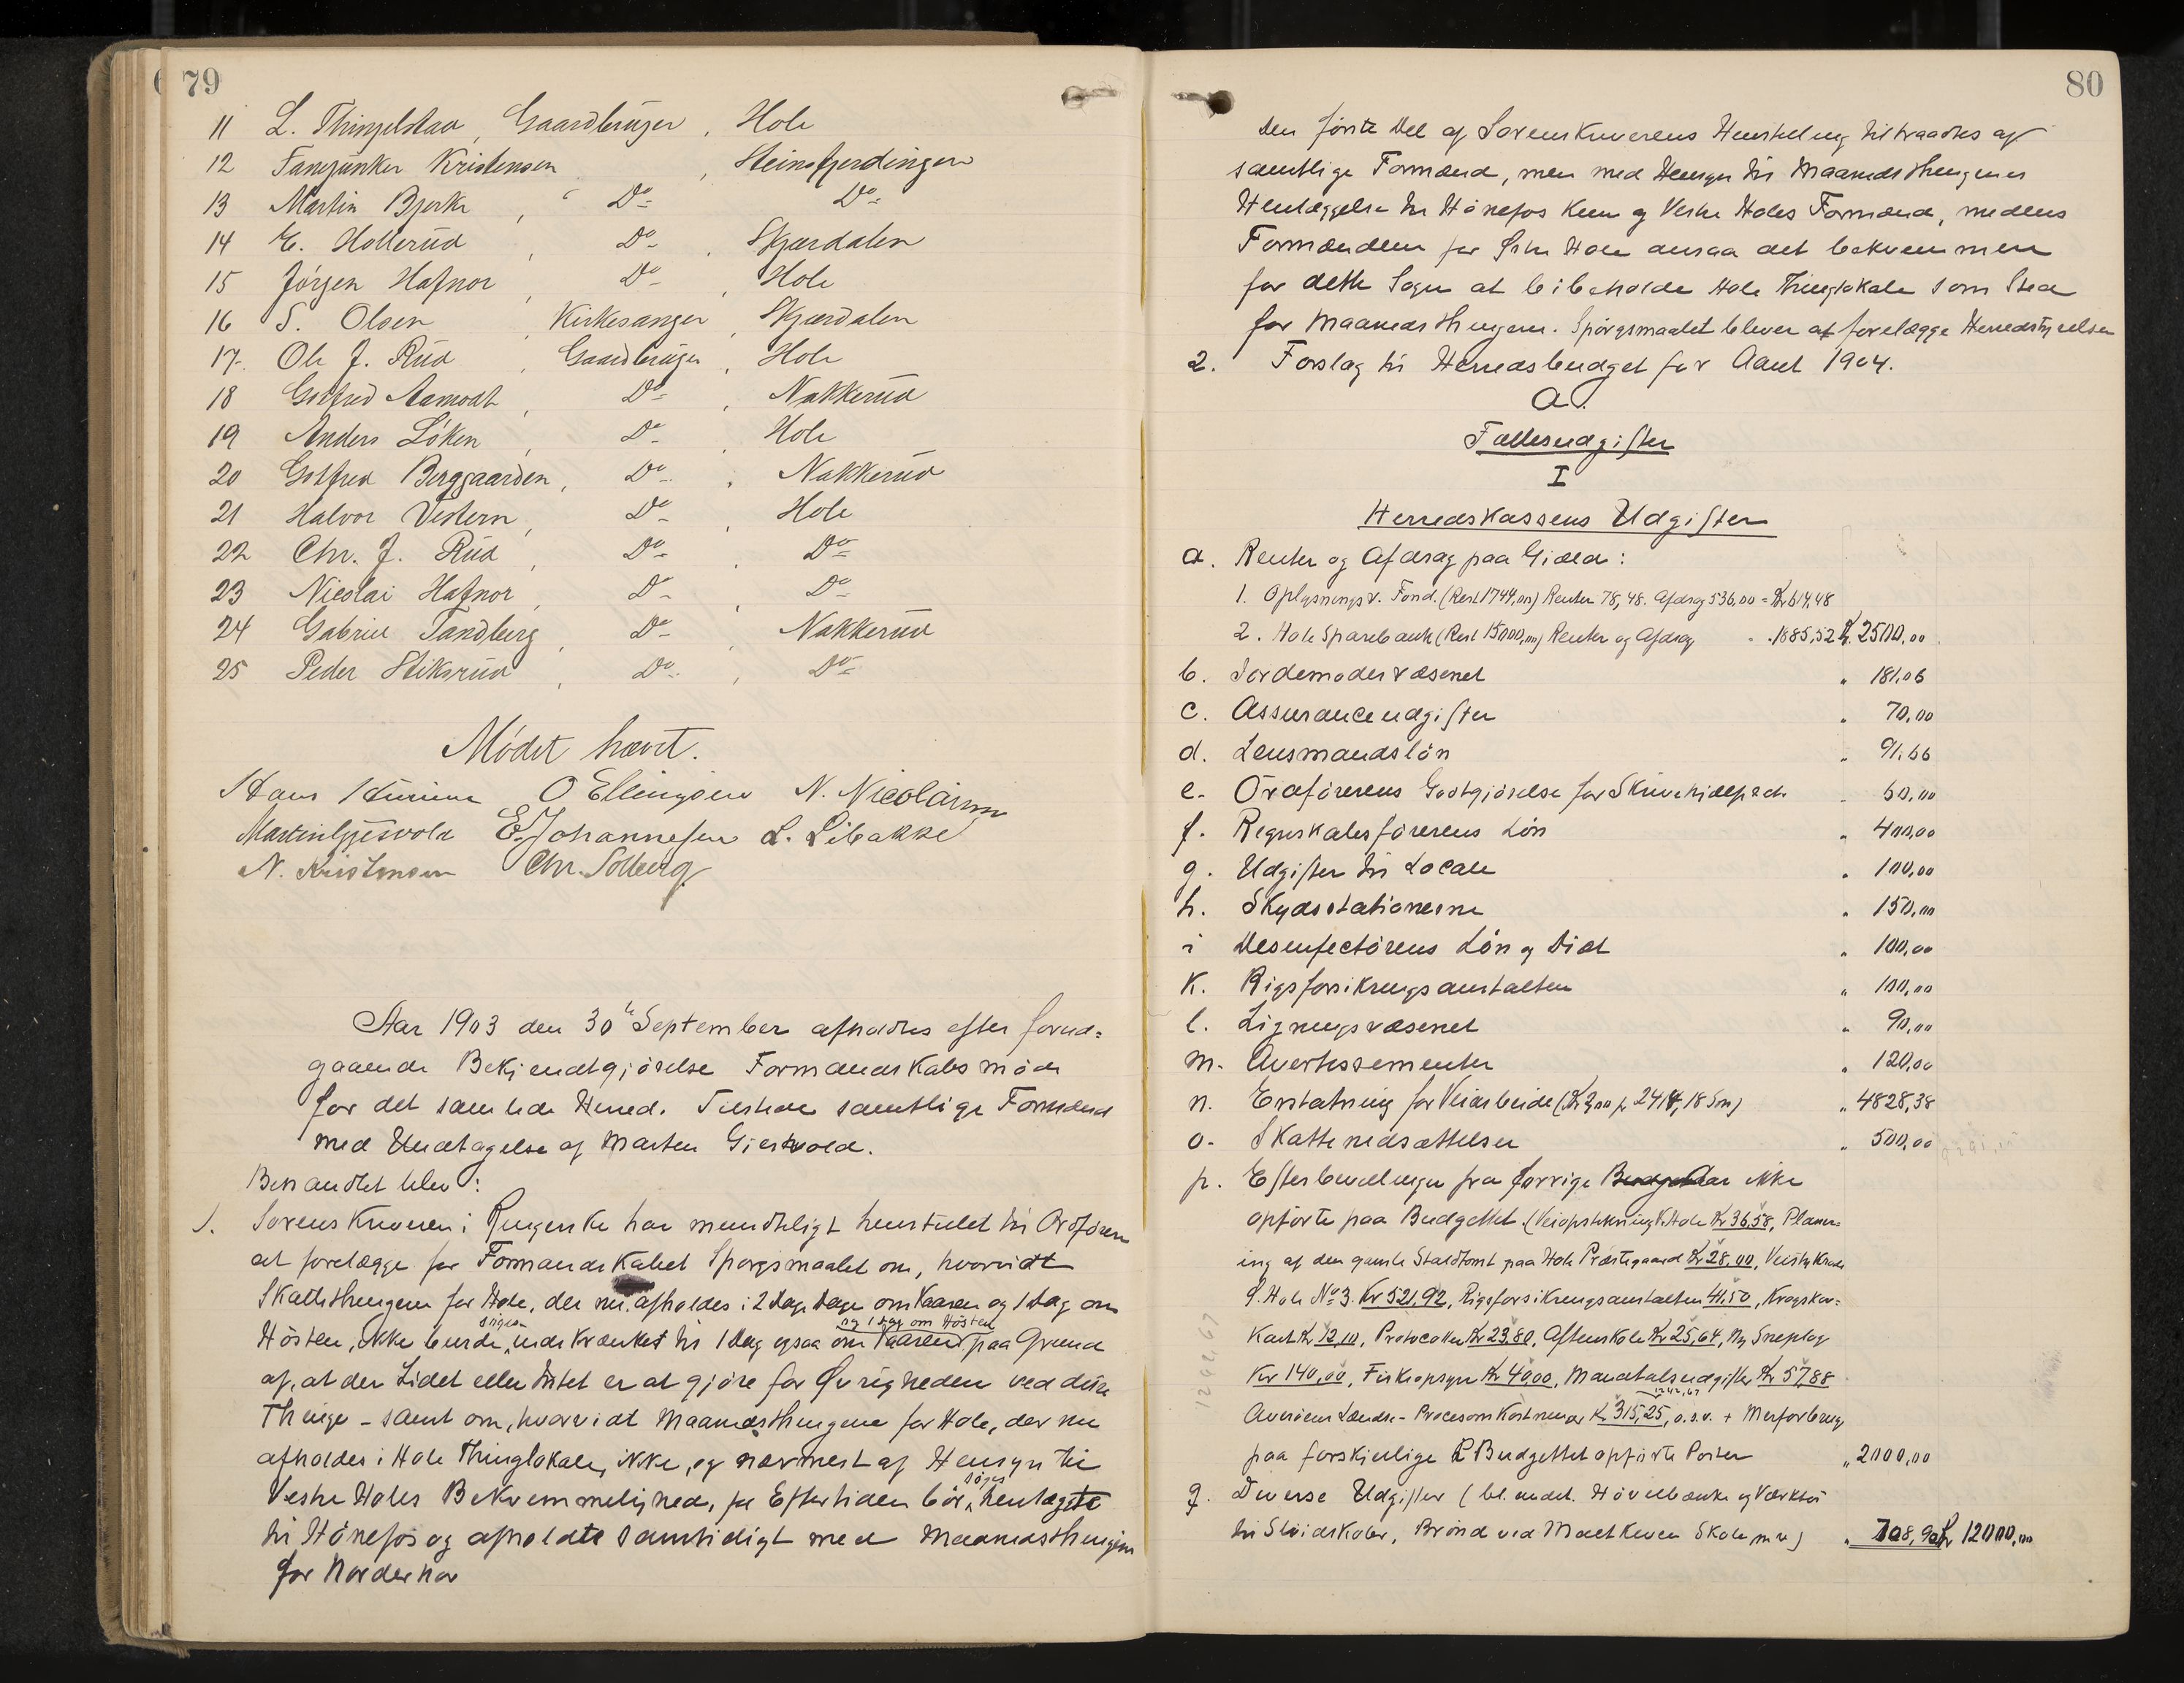 79
11 L. Thingelstad, Gaardbruger, Hole
12 Fanejunker Kristensen, Steinsfjerdingen
13 Martin Bjerke, " Do. Do.
14 E. Hollerud, Do., Skjærdalen
15 Jörgen Hafnor, Do., Hole
16 S. Olsen, Kirkesanger, Skjærdalen
17. Ole J. Rud, Gaardbruger, Hole
18 Gotfred Aamodt, Do., Nakkerud
19 Anders Löken, Do., Hole
20 Gotfred Berggaarden, Do., Nakkerud
21 Halvor Vestern, Do., Hole
22 Chr. J. Rud, Do., Do.
23 Nicolai Hafnor, Do., Do.
24 Gabriel Tandberg, Do., Nakkerud
25 Peder Stiksrud, Do., Do.
Mödet hævet.
Hans O Ellingsen N. Nicolaisen
Martin Gjesvold E. Johannesen L. Libakke
N. Kristensen Chr. Solberg
Aar 1903 den 30te September afholdtes efter forud-
gaaende Bekjendtgjörelse Formandskabsmöde
for det samlede Herred. Tilstede samtlige Formænd
med Undtagelse af Marten Gjesvold.
Behandlet blev:
1. Sorenskriveren i Ringerike har mundtligt henstillet til Ordföreren
at forelægge for Formandskabet Spörgsmaalet om, hvorvidt
Skattethingene for Hole, der nu afholdes i 2 Dage om Vaaren og 1 Dag om
Hösten, ikke burde söges indskrænket til 1 Dag ogsaa om Vaaren og 1 Dag om Hösten paa Grund
af, at der Lidet eller Intet er at gjöre for Øvrigheden ved disse
Thinge - samt om, hvorvidt Maanedsthingene for Hole, der nu
afholdes i Hole Thinglokale, ikke, og nærmest af Hensyn til
Vestre Holes Bekvemmelighed, for Eftertiden bör söges henlagte
til Hönefos og afholdte samtidigt med Maanedsthingene
for Norderhov
80
Den förste Del af Sorenskriverens Henstilling tiltraadtes af
samtlige Formænd, men med Hensyn til Maanedsthingenes
Henlæggelse til Hönefos kun af Vestre Holes Formænd, medens
Formændene for Østre Hole ansaa det bekvemmere
for dette Sogn at beibeholde Hole Thinglokale som Sted
for Maanedsthingene. Spörgsmaalet bliver at forelægge Herredstyrelsen
2. Forslag til Herredsbudget for Aaret 1904.
A.
Fællesudgifter
I
Herredskassens Udgifter
a. Renter og Afdrag paa Gjæld:
1. Oplysningsv. Fond. (Rest 1744,00) Renter 78,48. Afdrag 536,00 = Kr 614,48
2. Hole Sparebank (Rest 15000,00) Renter og Afdrag " 1885,52 Kr. 2500,00
b. Jordemodervæsenet " 181,06
c. Assuranceudgifter " 70,00
d. Lensmandslön " 91,66
e. Ordförerens Godtgjörelse for Skrivehjælp etc. " 60,00
f. Regnskabsförerens Lön " 400,00
g. Udgifter til Locale " 100,00
h. Skydsstationerne " 150,00
i Desinfectörens Lön og Diæt " 100,00
k. Rigsforsikringsanstalten " 100,00
l. Ligningsvæsenet " 90,00
m. Avertissementer " 120,00
n. Erstatning for Veiarbeide (Kr 2,00 pr 2414,18 Sm) " 4828,38
o. Skattenedsættelser " 500,00
p. Efterbevillinger fra forrige Aar ikke
opförte paa Budgettet (Veiopstikning V. Hole Kr 36,58, Planer-
ing af den gamle Staldtomt paa Hole Præstegaard Kr 28,00, Veistykke
Ø. Hole No 3. Kr 521,92, Rigsforsikringsanstalten 41,50, Krogskov-
Kart Kr 12,10, Protocoller Kr 23,80, Aftenskole Kr 25,64, Ny Sneplog
Kr 140,00, Fiskeopsyn Kr 40,00, Mandtalsudgifter Kr 57,88
1242,67
Averöen Lændse- Procesomkostninger Kr 315,25, o.s.v. + Merforbrug
paa forskjellige Budgettet opförte Poster " 2000,00
q. Diverse Udgifter (bl. andet. Hövelbænke og Værktöi
til Slöidskoler, Brönd ved Skole m.v.) " 708,90 Kr 12000,00
1242,67